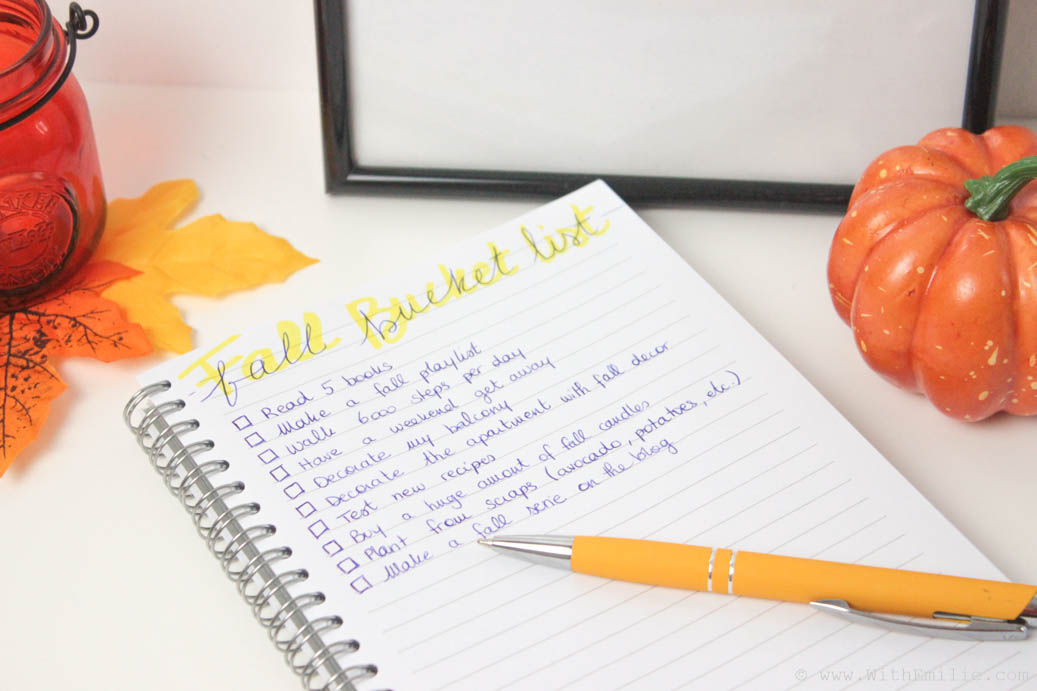 Fall Bucket list
Read 5 books
Make a fall playlist
Walk 6000 steps per day
Have a weekend get away
Decorate my balcony
Decorate the apartment with fall decor
Test new recipes
Buy a huge amount of fall candles
Plant from scraps (avocado, potatoes, etc.)
Make a fall serie on the blog
© www.WithEmilie.com